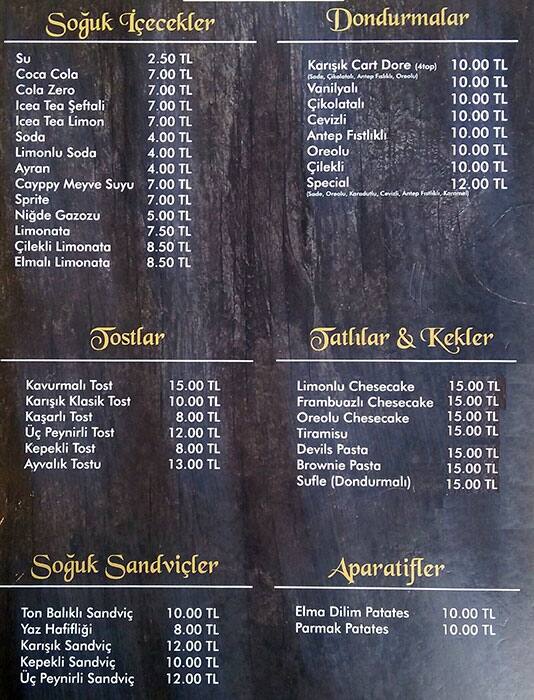 Soğuk İçecekler
Su 2.50 TL
Coca Cola 7.00 TL
Cola Zero 7.00 TL
Icea Tea Şeftali 7.00 TL
Icea Tea Limon 7.00 TL
Soda 4.00 TL
Limonlu Soda 4.00 TL
Ayran 4.00 TL
Cayppy Meyve Suyu 7.00 TL
Sprite 7.00 TL
Niğde Gazozu 5.00 TL
Limonata 7.50 TL
Çilekli Limonata 8.50 TL
Elmalı Limonata 8.50 TL
Dondurmalar
Karışık Cart Dore (4top) 10.00 TL
(Sade, Çikolatalı, Antep Fıslıklı, Oreolu)
Vanilyalı 10.00 TL
Çikolatalı 10.00 TL
Cevizli 10.00 TL
Antep Fıstlıklı 10.00 TL
Oreolu 10.00 TL
Çilekli 10.00 TL
Special 12.00 TL
(Sade, Oreolu, Karadutlu, Cevizli, Antep Fıstlıklı, Karamel)
Tostlar
Kavurmalı Tost 15.00 TL
Karışık Klasik Tost 10.00 TL
Kaşarlı Tost 8.00 TL
Üç Peynirli Tost 12.00 TL
Kepekli Tost 8.00 TL
Ayvalık Tostu 13.00 TL
Tatlılar & Kekler
Limonlu Chesecake 15.00 TL
Frambuazlı Chesecake 15.00 TL
Oreolu Chesecake 15.00 TL
Tiramisu 15.00 TL
Devils Pasta 15.00 TL
Brownie Pasta 15.00 TL
Sufle (Dondurmalı) 15.00 TL
Soğuk Sandviçler
Ton Balıklı Sandviç 10.00 TL
Yaz Hafifliği 8.00 TL
Karışık Sandviç 12.00 TL
Kepekli Sandviç 10.00 TL
Üç Peynirli Sandviç 12.00 TL
Aparatifler
Elma Dilim Patates 10.00 TL
Parmak Patates 10.00 TL